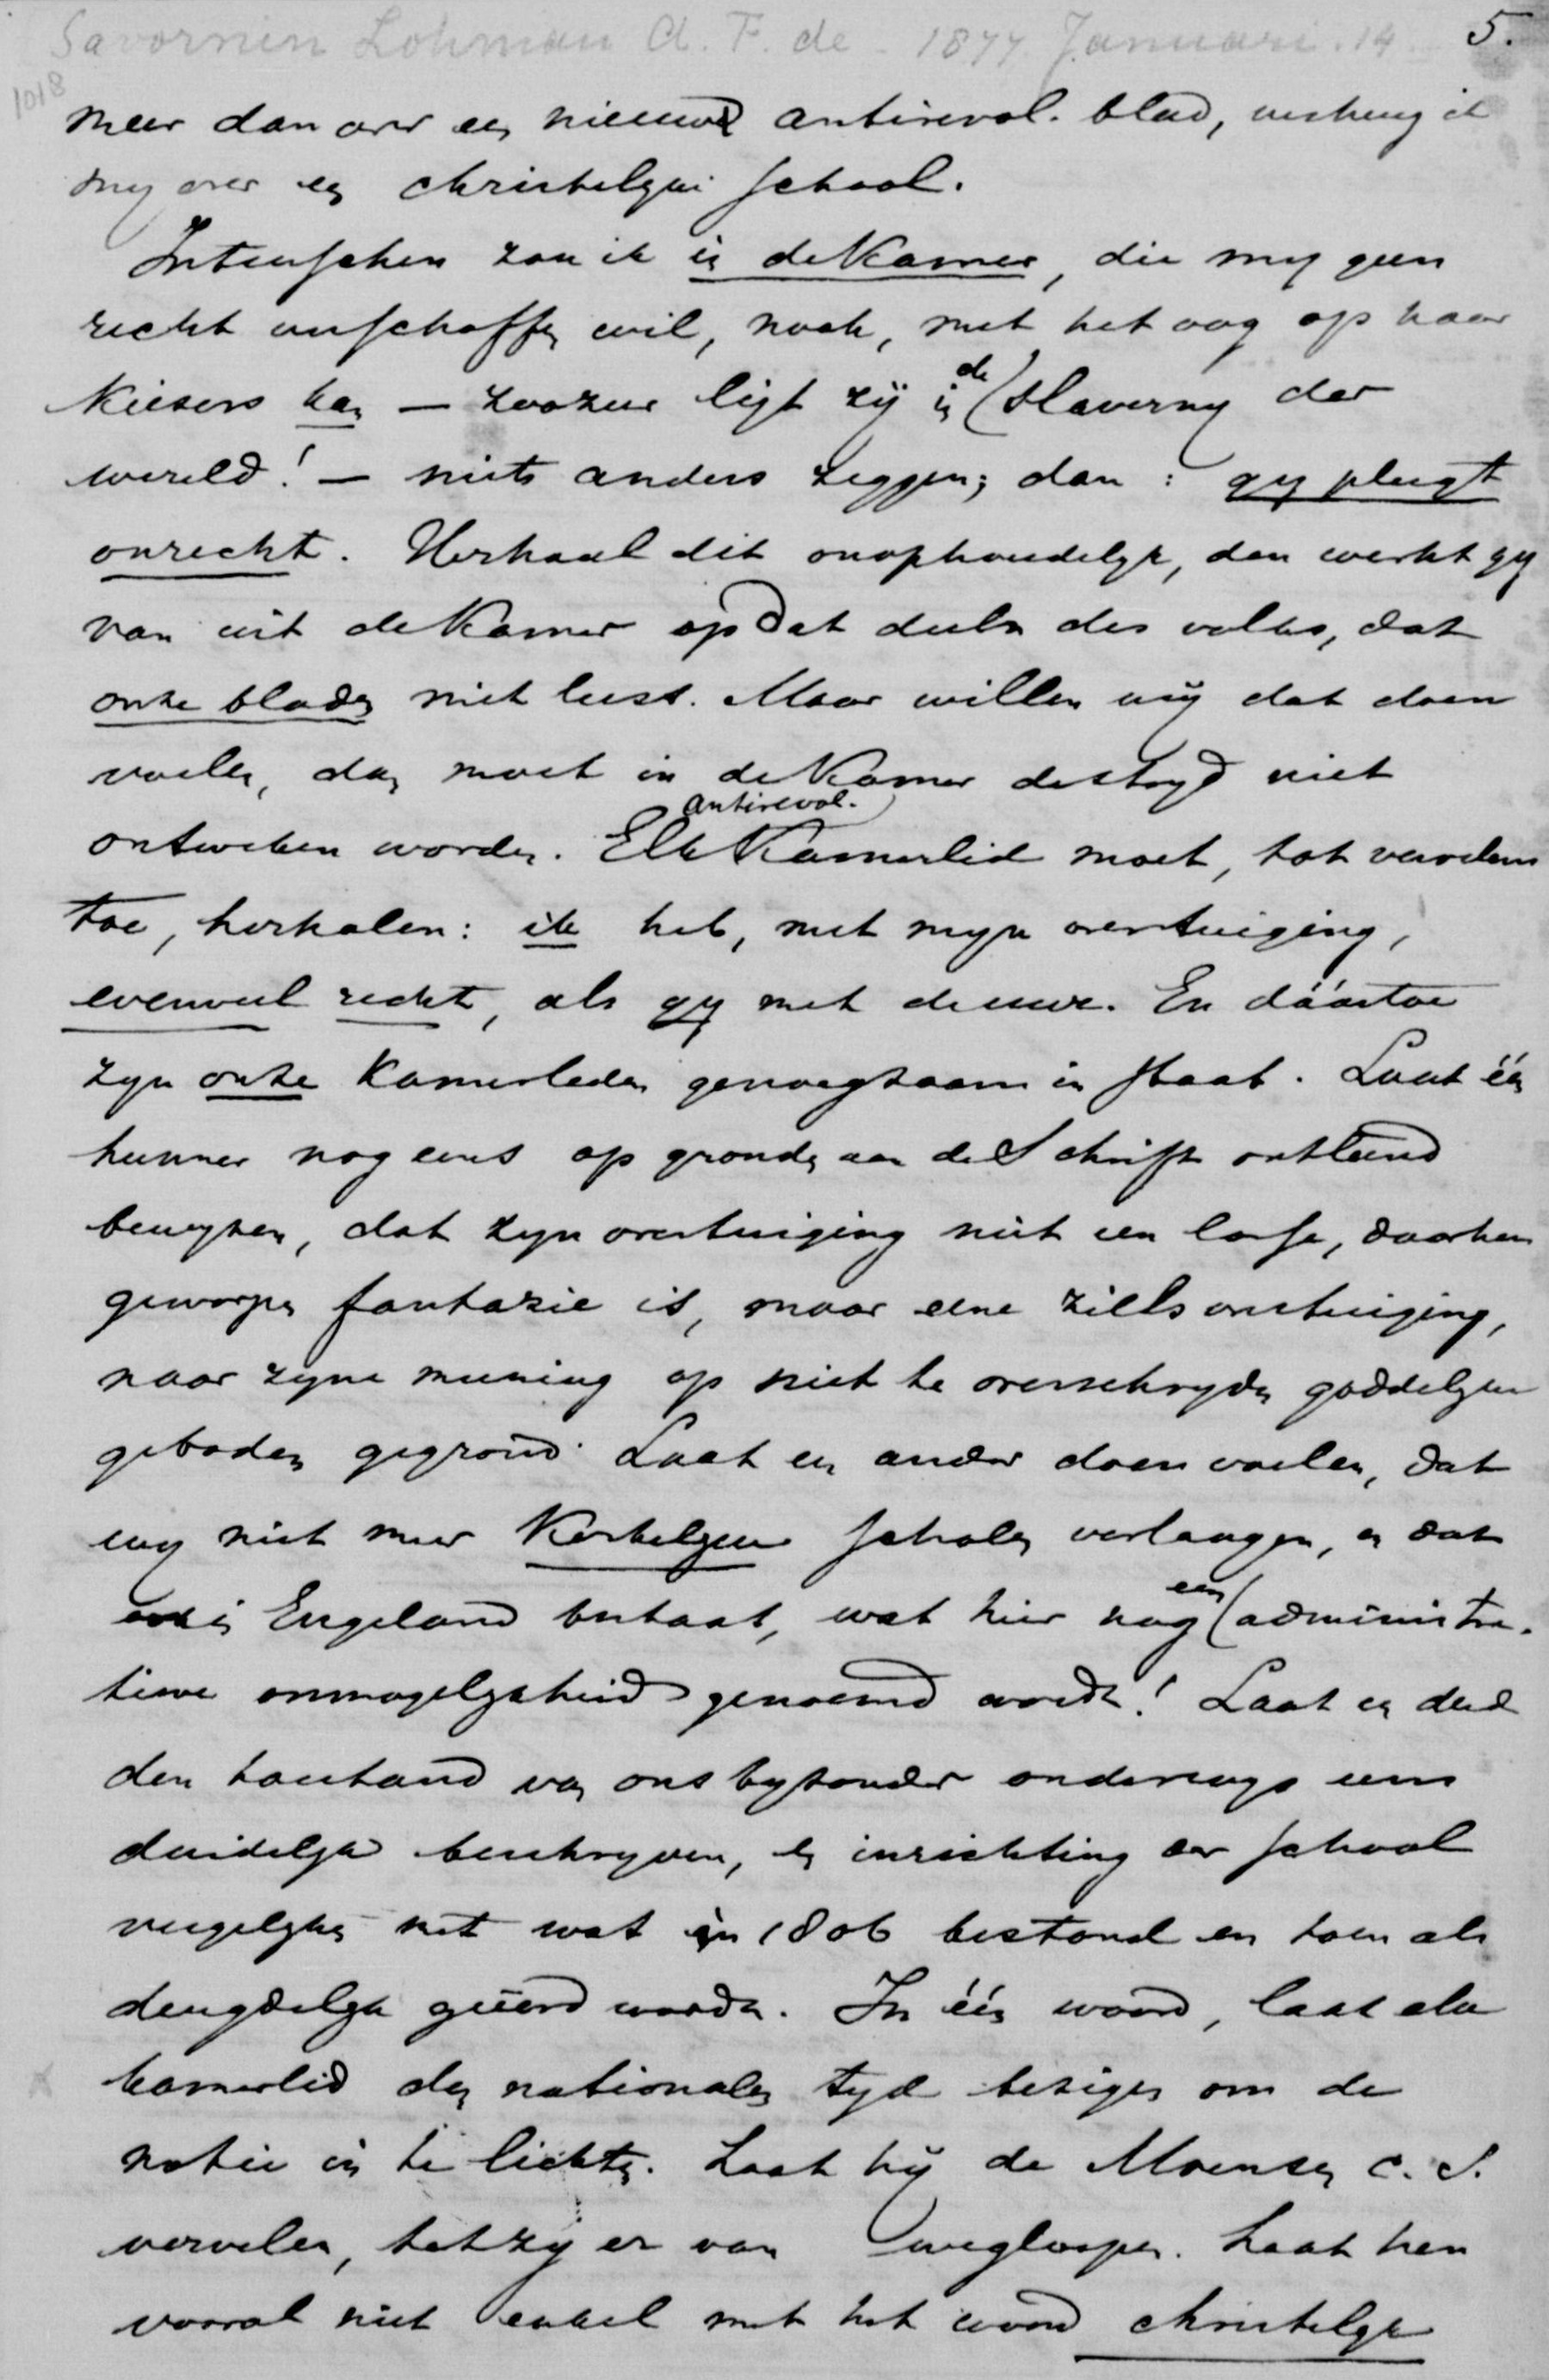 Savornin Lohman A. F. de - 1877 Januari. 14 5.
1018
meer dan over een nieuwe antirevol. blad, verheug ik
my over een christelyke school.
Intusschen zou ik in de Kamer, die my geen
recht verschaffen wil, noch, met het oog op haar
Kiesers kan – zoozeer ligt zij in de slaverny der
wereld! – niets anders zeggen, dan: gy pleegt
onrecht. Herhaal dit onophoudelyk, dan werkt gy
van uit de Kamer op dat deel des volks, dat
onze bladen niet leest. Maar willen wij dat doen
voelen, dan moet in de Kamer de stryd niet
ontweken worden. Elk antirevol. Kamerlid moet, tot vervelens
toe, herhalen: ik heb, met myn overtuiging,
evenveel recht, als gy met de uwe. En dáártoe
zyn onze Kamerleden genoegzaam in staat. Laat één
hunner nog eens op gronden aan de Schrift ontleend
bewyzen, dat zyn overtuiging niet een losse, daarheen
geworpen fantazie is, maar eene zielsovertuiging,
naar zyne meening op niet te overschryden goddelyke
geboden gegrond. Laat een ander doen voelen, dat
wy niet meer Kerkelyke scholen verlangen, en dat
in Engeland bestaat, wat hier nog een administra-
tieve onmogelykheid genoemd wordt! Laat een derde
den toestand van ons byzonder onderwys eens
duidelyk beschryven, en inrichting der school
vergelyken met wat in 1806 bestond en toen als
deugdelyk geëerd werd. In één woord, laat elk
kamerlid den nationalen tyd bezigen om de
natie in te lichten. Laat hij de Moensen c.s.
vervelen, tot zy er van wegloopen. Laat hen
vooral niet enkel met het woord christelyk